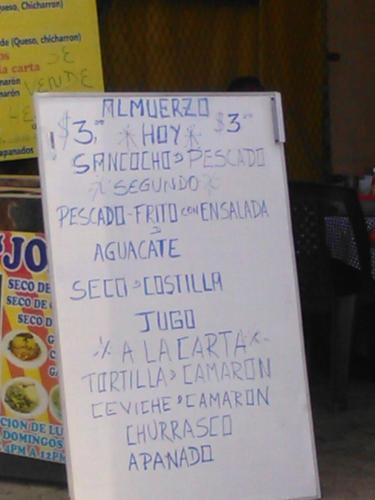 ueso, Chicharron)
de (Queso, chicharron)
la carta
SE
VENDE
apanados
ALMUERZO
$3,00 *HOY* $3,00
SANCOCHO D PESCADO
*SEGUNDO*
PESCADO-FRITO CON ENSALADA
D
AGUACATE
SECO D COSTILLA
JUGO
·/· A LA CARTA ·/·
TORTILLA D CAMARON
CEVICHE D CAMARON
CHURRASCO
APANADO
"JO
SECO DE
SECO DE
SECO D
CION DE LU
DOMINGOS
4PM A 12PM